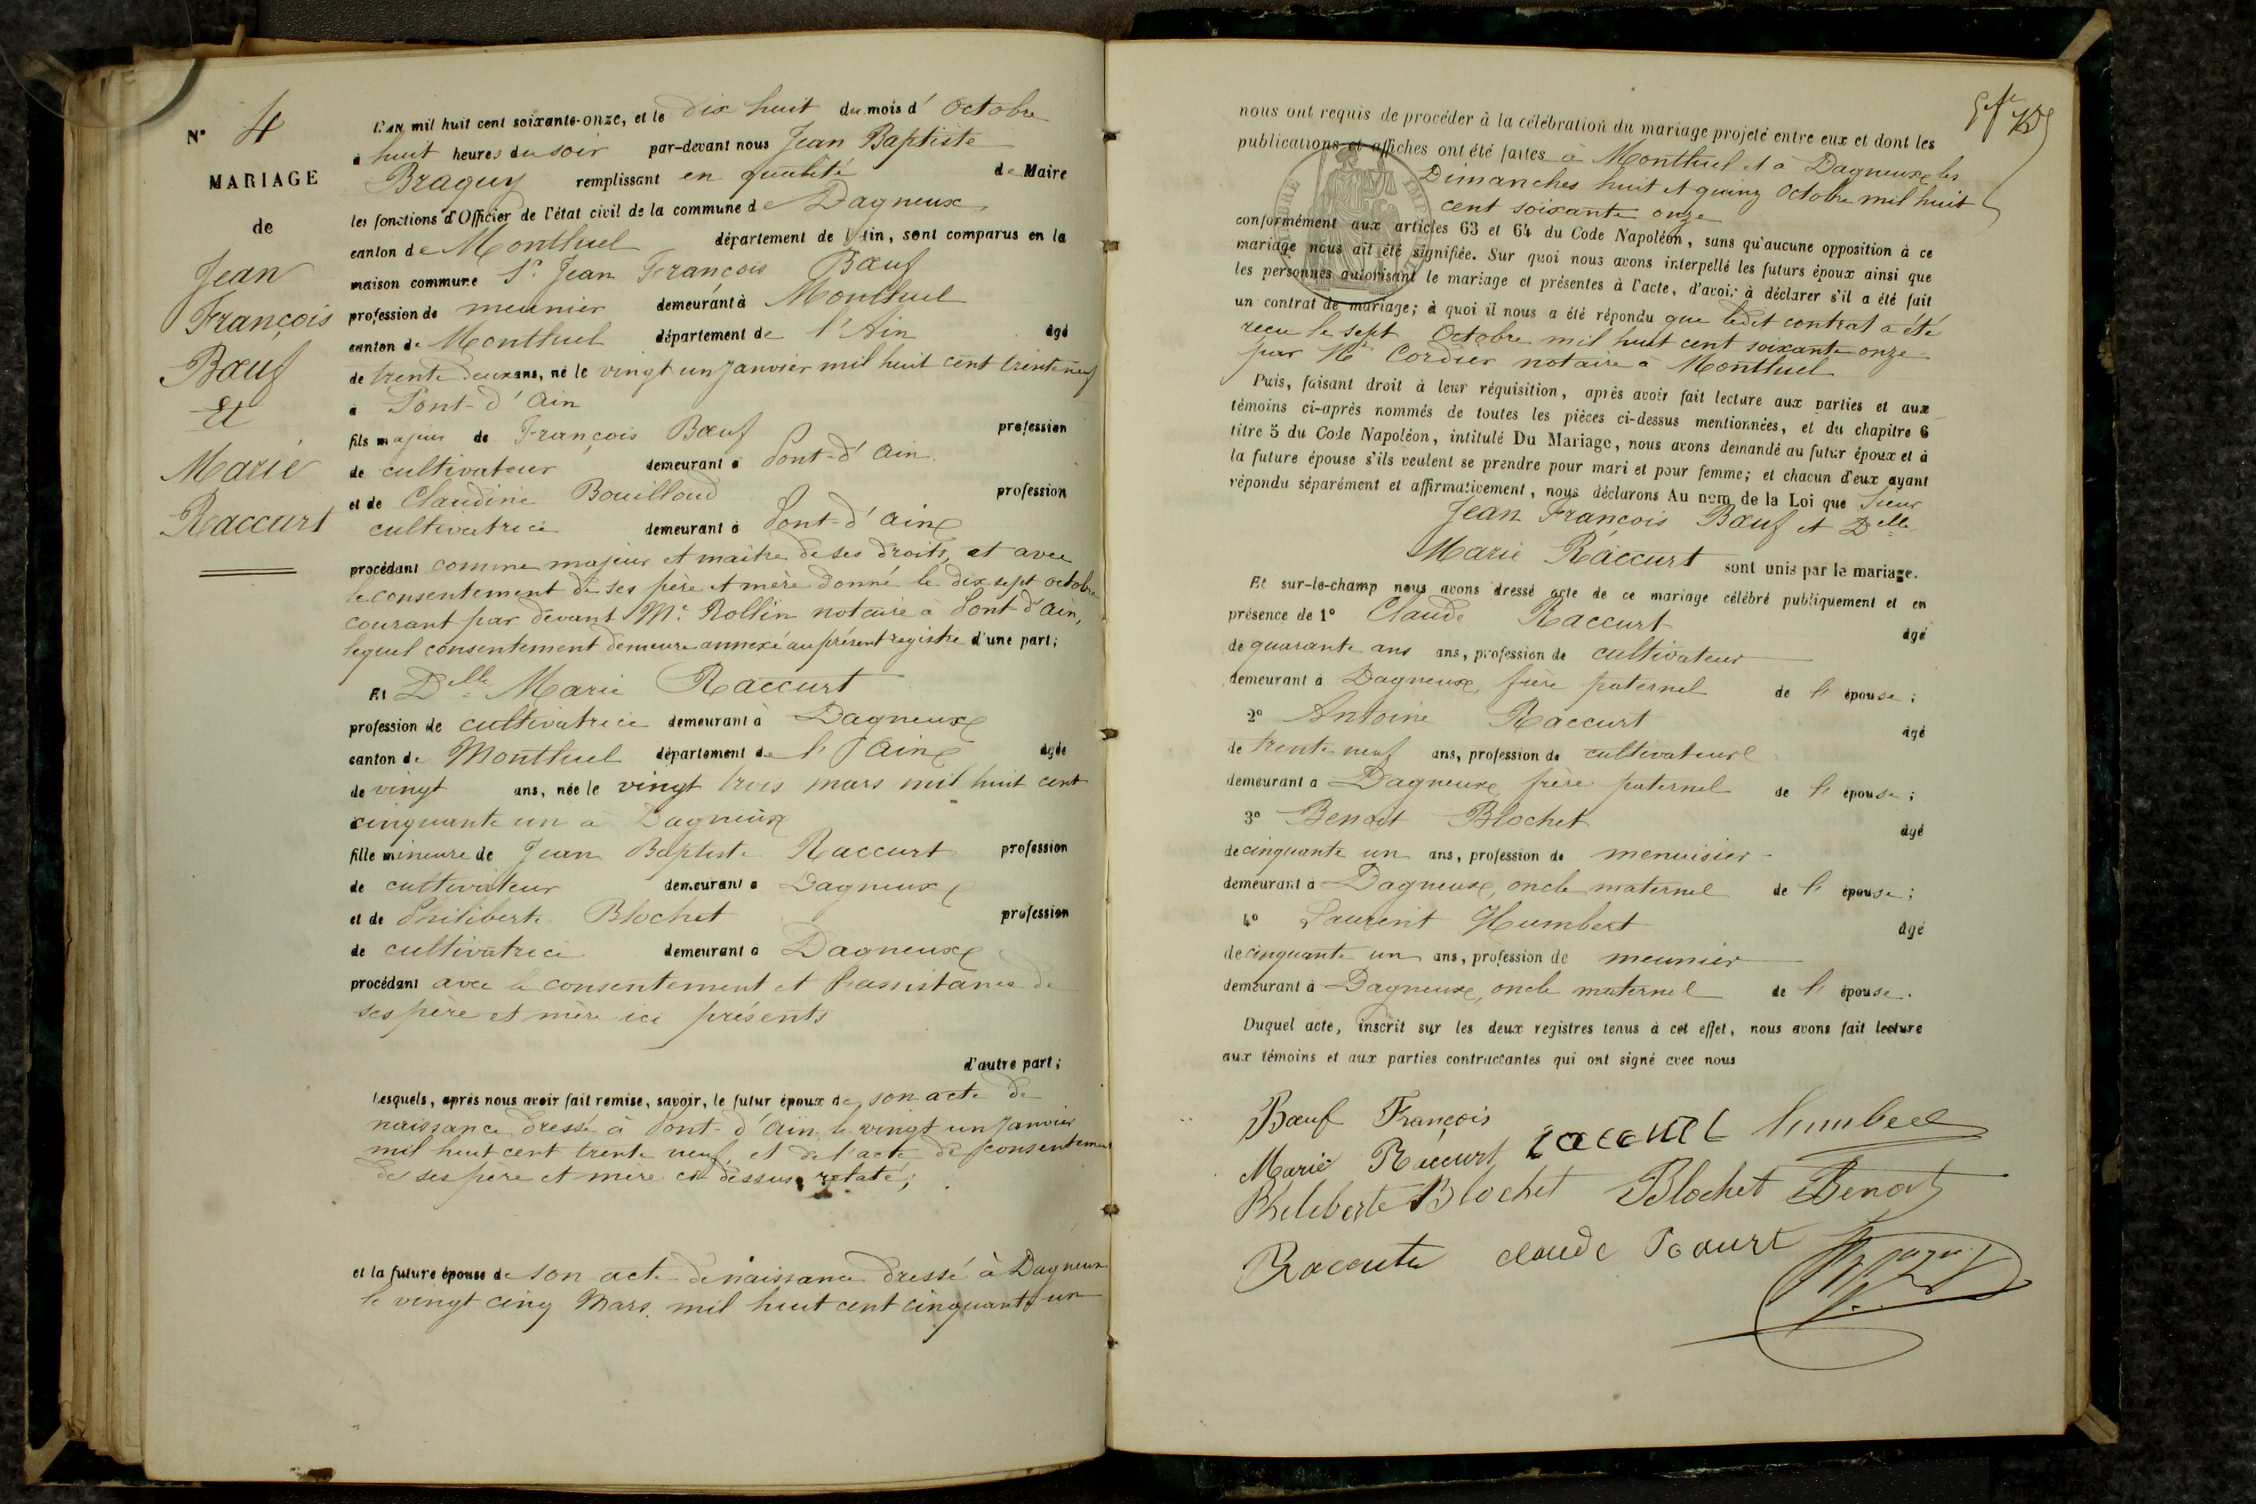 N° 4
MARIAGE
de
Jean
François
Bœuf
Et
Marie
Raccurt
L'AN mil huit cent soixante-onze, et le dix huit du mois d' Octobre
à huit heures du soir par-devant nous Jean Baptiste
Braguy remplissant en qualité de Maire
les fonctions d'Officier de l'état civil de la commune de Dagneux
canton de Montluel département de l'Ain, sont comparus en la
maison commune Sr Jean François Bœuf
profession de meunier demeurant à Montluel
canton de Montluel département de l'Ain âgé
de trente deux ans, né le vingt un janvier mil huit cent trente neuf
à Pont-d'Ain
fils majeur de François Bœuf profession
de cultivateur demeurant à Pont-d'Ain
et de Claudine Bouilloud profession
cultivatrice demeurant à Pont-d'Ain
procédant comme majeur et maître de ses droits, et avec
le consentement de ses père et mère donné le dix sept octobre
courant par devant Me Rollin notaire à Pont d'Ain,
lequel consentement demeure annexé au présent registre d'une part;
Et Delle Marie Raccurt
profession de cultivatrice demeurant à Dagneux
canton de Montluel département de l'Ain âgée
de vingt ans, née le vingt trois mars mil huit cent
cinquante un à Dagneux
fille mineure de Jean Baptiste Raccurt profession
de cultivateur demeurant à Dagneux
et de Philiberte Blochet profession
de cultivatrice demeurant à Dagneux
procédant avec le consentement et l'assistance de
ses père et mère ici présents
d'autre part;
Lesquels, après nous avoir fait remise, savoir, le futur époux de son acte de
naissance dressé à Pont-d'Ain le vingt un janvier
mil huit cent trente neuf, et de l'acte de consentement
de ses père et mère ci dessus relaté;
et la future épouse de son acte de naissance dressé à Dagneux
le vingt cinq Mars mil huit cent cinquante un
nous ont requis de procéder à la célébration du mariage projeté entre eux et dont les
publications et affiches ont été faites à Montluel et à Dagneux les
Dimanches huit et quinze Octobre mil huit
cent soixante onze
conformément aux articles 63 et 64 du Code Napoléon, sans qu'aucune opposition à ce
mariage nous ait été signifiée. Sur quoi nous avons interpellé les futurs époux ainsi que
les personnes autorisant le mariage et présentes à l'acte, d'avoir à déclarer s'il a été fait
un contrat de mariage; à quoi il nous a été répondu que ledit contrat a été
reçu le sept Octobre mil huit cent soixante onze
par Me Cordier notaire à Montluel
Puis, faisant droit à leur réquisition, après avoir fait lecture aux parties et aux
témoins ci-après nommés de toutes les pièces ci-dessus mentionnées, et du chapitre 6
titre 5 du Code Napoléon, intitulé Du Mariage, nous avons demandé au futur époux et à
la future épouse s'ils veulent se prendre pour mari et pour femme; et chacun d'eux ayant
répondu séparément et affirmativement, nous déclarons Au nom de la Loi que Sieur
Jean François Bœuf et Delle
Marie Raccurt sont unis par le mariage.
Et sur-le-champ nous avons dressé acte de ce mariage célébré publiquement et en
présence de 1° Claude Raccurt âgé
de quarante ans ans, profession de cultivateur
demeurant à Dagneux, frère paternel de l'épouse;
2° Antoine Raccurt âgé
de trente neuf ans, profession de cultivateur
demeurant à Dagneux, frère paternel de l'épouse;
3° Benoit Blochet âgé
de cinquante un ans, profession de menuisier
demeurant à Dagneux, oncle maternel de l'épouse;
4° Laurent Humbert âgé
de cinquante un ans, profession de meunier
demeurant à Dagneux, oncle maternel de l'épouse.
Duquel acte, inscrit sur les deux registres tenus à cet effet, nous avons fait lecture
aux témoins et aux parties contractantes qui ont signé avec nous
Bœuf François
Marie Raccurt
Philiberte Blochet Blochet Benoit
claude